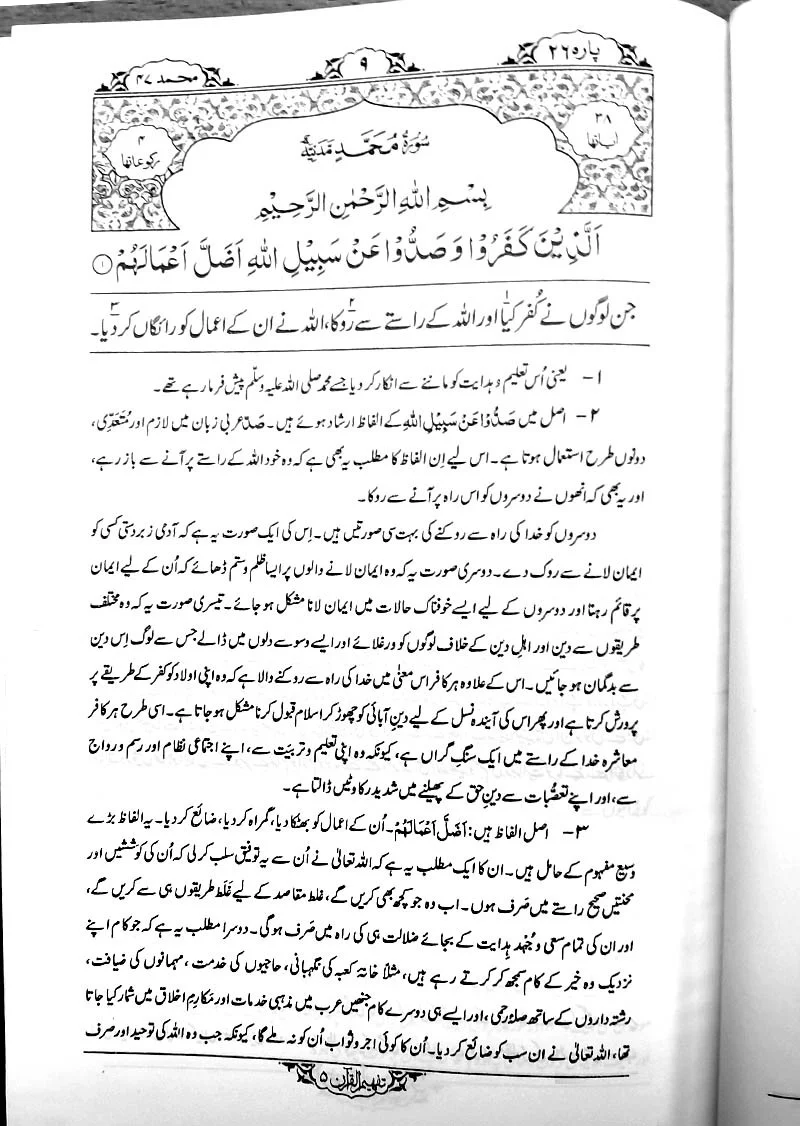 پارہ ۲۶
۹
محمد ۴۷
۳۸
اٰیاتہا
۴
رکوعاتہا
سُوْرَۃُ مُحَمَّدٍ مَدَنِیَّۃٌ
بِسْمِ اللّٰہِ الرَّحْمٰنِ الرَّحِیْمِ
اَلَّذِیْنَ کَفَرُوْا وَصَدُّوْا عَنْ سَبِیْلِ اللّٰہِ اَضَلَّ اَعْمَالَہُمْ ﴿۱﴾
جن لوگوں نے کُفر کیا۱ اور اللہ کے راستے سے روکا۲، اللہ نے ان کے اعمال کو رائگاں کر دیا۳۔
۱- یعنی اُس تعلیم و ہدایت کو ماننے سے انکار کر دیا جسے محمد صلی اللہ علیہ وسلّم پیش فرما رہے تھے۔
۲- اصل میں صَدُّوْا عَنْ سَبِیْلِ اللّٰہِ کے الفاظ ارشاد ہوئے ہیں۔ صَدّ عربی زبان میں لازم اور مُتَعَدِّی،
دونوں طرح استعمال ہوتا ہے۔ اس لیے اِن الفاظ کا مطلب یہ بھی ہے کہ وہ خود اللہ کے راستے پر آنے سے باز رہے،
اور یہ بھی کہ انھوں نے دوسروں کو اس راہ پر آنے سے روکا۔
دوسروں کو خدا کی راہ سے روکنے کی بہت سی صورتیں ہیں۔ اِس کی ایک صورت یہ ہے کہ آدمی زبردستی کسی کو
ایمان لانے سے روک دے۔ دوسری صورت یہ کہ وہ ایمان لانے والوں پر ایسا ظلم وستم ڈھائے کہ اُن کے لیے ایمان
پر قائم رہنا اور دوسروں کے لیے ایسے خوفناک حالات میں ایمان لانا مشکل ہو جائے۔ تیسری صورت یہ کہ وہ مختلف
طریقوں سے دین اور اہلِ دین کے خلاف لوگوں کو ورغلائے اور ایسے وسوسے دلوں میں ڈالے جس سے لوگ اِس دین
سے بدگمان ہو جائیں۔ اس کے علاوہ ہر کافر اس معنٰی میں خدا کی راہ سے روکنے والا ہے کہ وہ اپنی اولاد کو کفر کے طریقے پر
پرورش کرتا ہے اور پھر اس کی آیندہ نسل کے لیے دینِ آبائی کو چھوڑ کر اسلام قبول کرنا مشکل ہو جاتا ہے۔ اسی طرح ہر کافر
معاشرہ خدا کے راستے میں ایک سنگِ گراں ہے، کیونکہ وہ اپنی تعلیم و تربیّت سے، اپنے اجتماعی نظام اور رسم و رواج
سے، اور اپنے تعصُّبات سے دینِ حق کے پھیلنے میں شدید رکاوٹیں ڈالتا ہے۔
۳- اصل الفاظ ہیں: اَضَلَّ اَعْمَالَہُمْ۔ اُن کے اعمال کو بھٹکا دیا، گمراہ کر دیا، ضائع کر دیا۔ یہ الفاظ بڑے
وسیع مفہوم کے حامل ہیں۔ ان کا ایک مطلب یہ ہے کہ اللہ تعالیٰ نے اُن سے یہ توفیق سلب کر لی کہ اُن کی کوششیں اور
محنتیں صحیح راستے میں صَرف ہوں۔ اب وہ جو کچھ بھی کریں گے، غلط مقاصد کے لیے غَلَط طریقوں ہی سے کریں گے،
اور ان کی تمام سعی و جُہْد ہِدایت کے بجائے ضلالت ہی کی راہ میں صَرف ہوگی۔ دوسرا مطلب یہ ہے کہ جو کام اپنے
نزدیک وہ خیر کے کام سمجھ کر کرتے رہے ہیں، مثلاً خانۂ کعبہ کی نگہبانی، حاجیوں کی خدمت، مہمانوں کی ضیافت،
رشتہ داروں کے ساتھ صلۂ رحمی، اور ایسے ہی دوسرے کام جنھیں عرب میں مذہبی خدمات اور مَکارِمِ اخلاق میں شمار کیا جاتا
تھا، اللہ تعالیٰ نے ان سب کو ضائع کر دیا۔ اُن کا کوئی اجر و ثواب اُن کو نہ ملے گا، کیونکہ جب وہ اللہ کی توحید اور صرف
تفہیم القرآن ۵